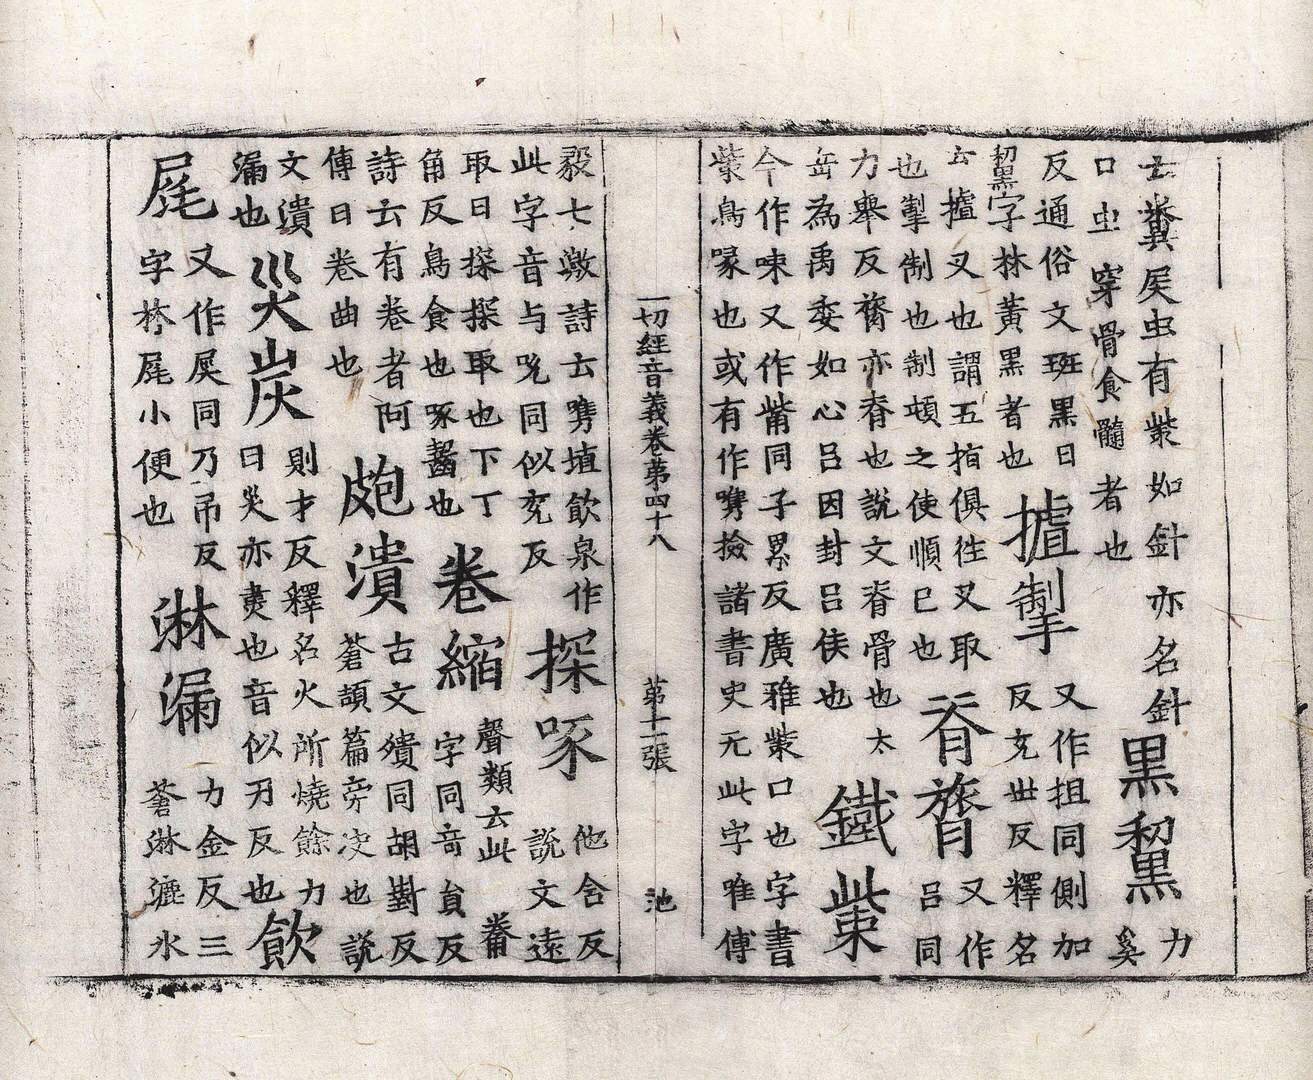 云糞屎虫有觜如針亦名針
口虫穿骨食髓者也
黑黧
力
奚
反通俗文班黑曰
黧字林黃黑者也
摣掣
又作抯同側加
反充世反釋名
云摣叉也謂五指俱往叉取
也掣制也制頓之使順已也
脊膂
又作
呂同
力舉反膂亦脊也說文脊骨也太
岳為禹委如心呂因封呂侯也
鐵觜
今作㖡又作觜同子累反廣雅觜口也字書
觜鳥喙也或有作㗱撿諸書史无此字唯傅
一切經音義卷第四十八 第十一張 池
毅七激詩云㗱埴飲泉作
此字音与吮同似兗反
探啄
他含反
說文遠
取曰探探取也下丁
角反鳥食也啄齧也
卷縮
聲類云此觠
字同奇負反
詩云有卷者阿
傳曰卷曲也
皰潰
古文殨同胡對反
蒼頡篇旁决也說
文潰
漏也
災炭
則才反釋名火所燒餘力
曰災亦燼也音似刃反也
飲
尾
又作㞙同乃吊反
字尾小便也
淋漏
力金反三
蒼淋漉水